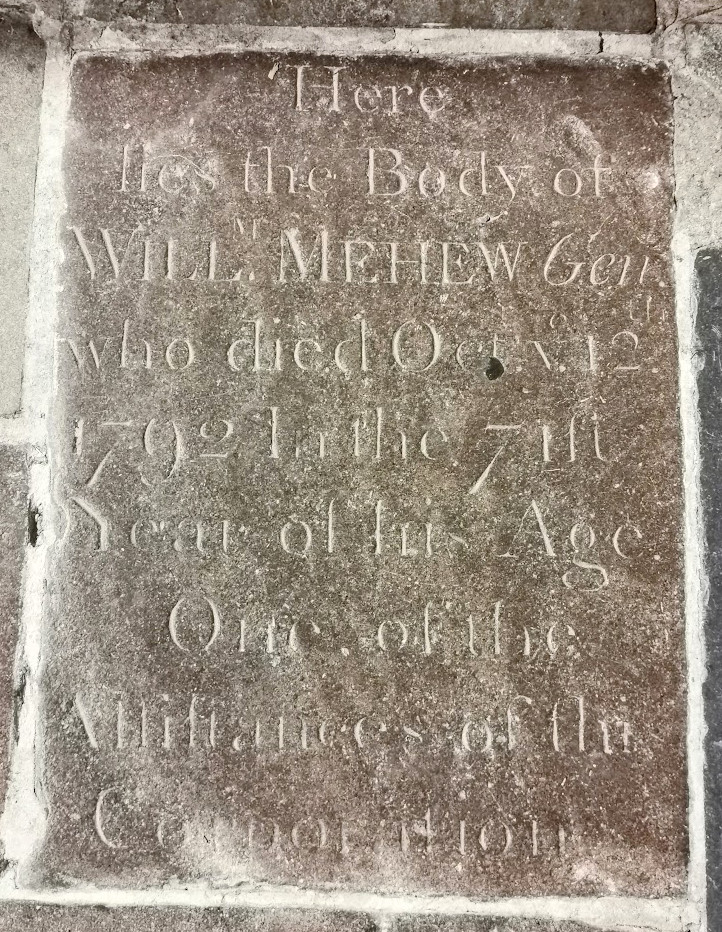 Here
lies the Body of
WILLᴹ. MEHEW Genᵗ.
who died Octoᵛ. 12ᵗʰ.
1792 In the 71ſt
Year of his Age
One of the
Aſſiſtances of this
Corporation